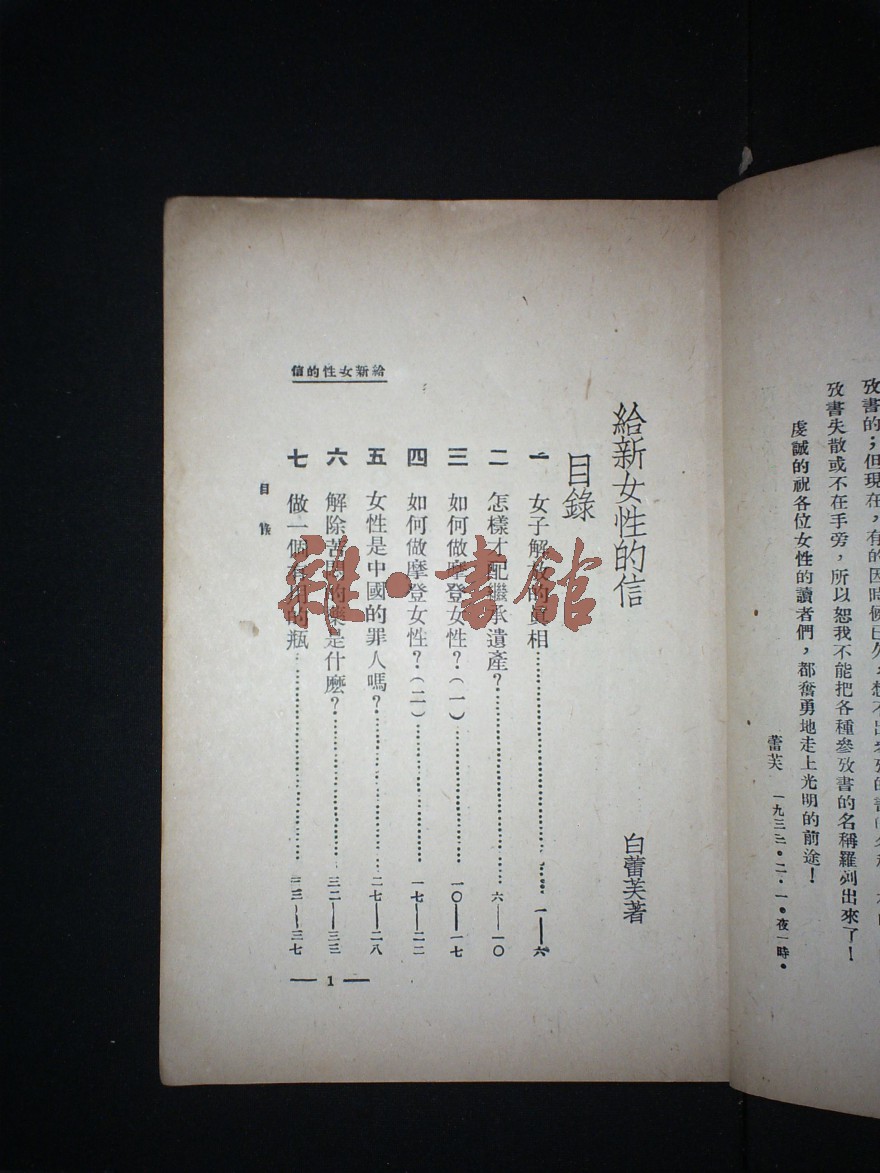 攷書失散或不在手旁，所以恕我不能把各種參攷書的名稱羅列出來了！
虔誠的祝各位女性的讀者們，都奮勇地走上光明的前途！
蕾芙 一九三三・二・一・夜一時・
給新女性的信
白蕾芙著
目錄
一 女子解放的眞相 一——六
二 怎樣才配繼承遺產？ 六——一〇
三 如何做摩登女性？（一） 一〇——一七
四 如何做摩登女性？（二） 一七——二二
五 女性是中國的罪人嗎？ 二七——二八
六 解除苦悶的藥是什麼？ 三二——三三
七 做一個有用的瓶 三三——三七
給新女性的信
目錄
— 1 —
雜・書館